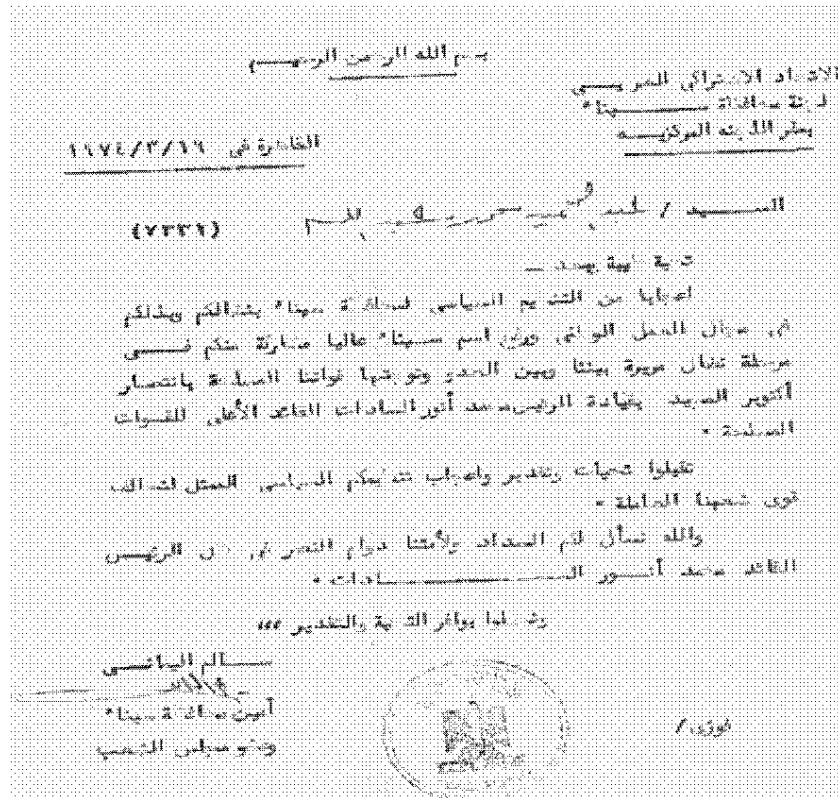 بسم الله الرحمن الرحيم
الاتحاد الاشتراكى العربى
لجنة محافظة سيناء
بمقر اللجنه المركزيه
القاهرة فى ١٩٧٤/٣/١٦
السيد /
(٧٣٣٩)
تحية طيبة وبعد ــ
اعجابا من التنظيم السياسى لمحافظة سيناء بنضالكم وبذلكم
فى ميدان العمل الوطنى ورفع اسم سيناء عاليا مشاركة منكم فى
مرحلة نضال مريرة بيننا وبين العدو وتوجتها قواتنا المسلحة بانتصار
أكتوبر المجيد بقيادة الرئيس محمد أنور السادات القائد الأعلى للقوات
المسلحة ٠
تقبلوا تحيات وتقدير واعجاب تنظيمكم السياسى الممثل لتحالف
قوى شعبنا العاملة ٠
والله نسأل لكم السداد ولأمتنا دوام النصر فى ظل الرئيس
القائد محمد أنور السادات ٠
وتفضلوا بوافر التحية والتقدير ،،،
سالم اليمانى
أمين محافظة سيناء
وعضو مجلس الشعب
فوزى/